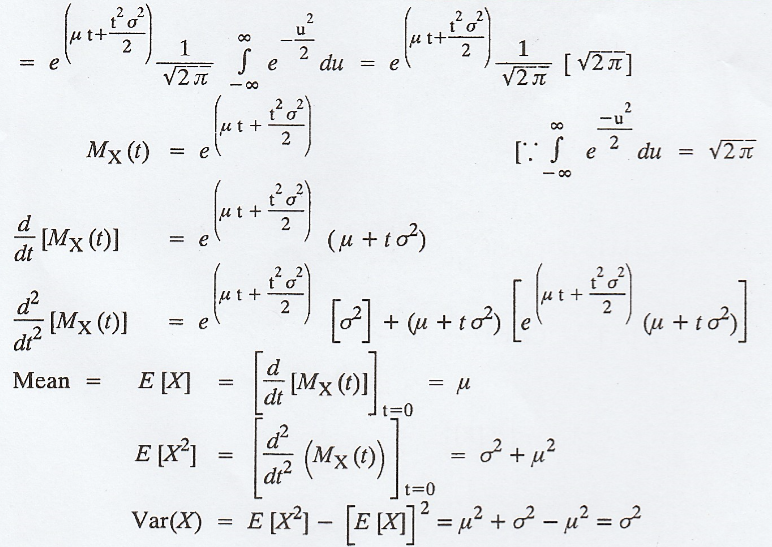 = e^(μ t + t²σ²/2) 1/√2π ∫_{-∞}^{∞} e^{-u²/2} du = e^(μ t + t²σ²/2) 1/√2π [√2π]
M_X (t) = e^(μ t + t²σ²/2) [∵ ∫_{-∞}^{∞} e^{-u²/2} du = √2π
d/dt [M_X (t)] = e^(μ t + t²σ²/2) (μ + t σ²)
d²/dt² [M_X (t)] = e^(μ t + t²σ²/2) [σ²] + (μ + t σ²) [e^(μ t + t²σ²/2) (μ + t σ²)]
Mean = E [X] = [d/dt [M_X (t)]]_{t=0} = μ
E [X²] = [d²/dt² (M_X (t))]_{t=0} = σ² + μ²
Var(X) = E [X²] − [E [X]]² = μ² + σ² − μ² = σ²